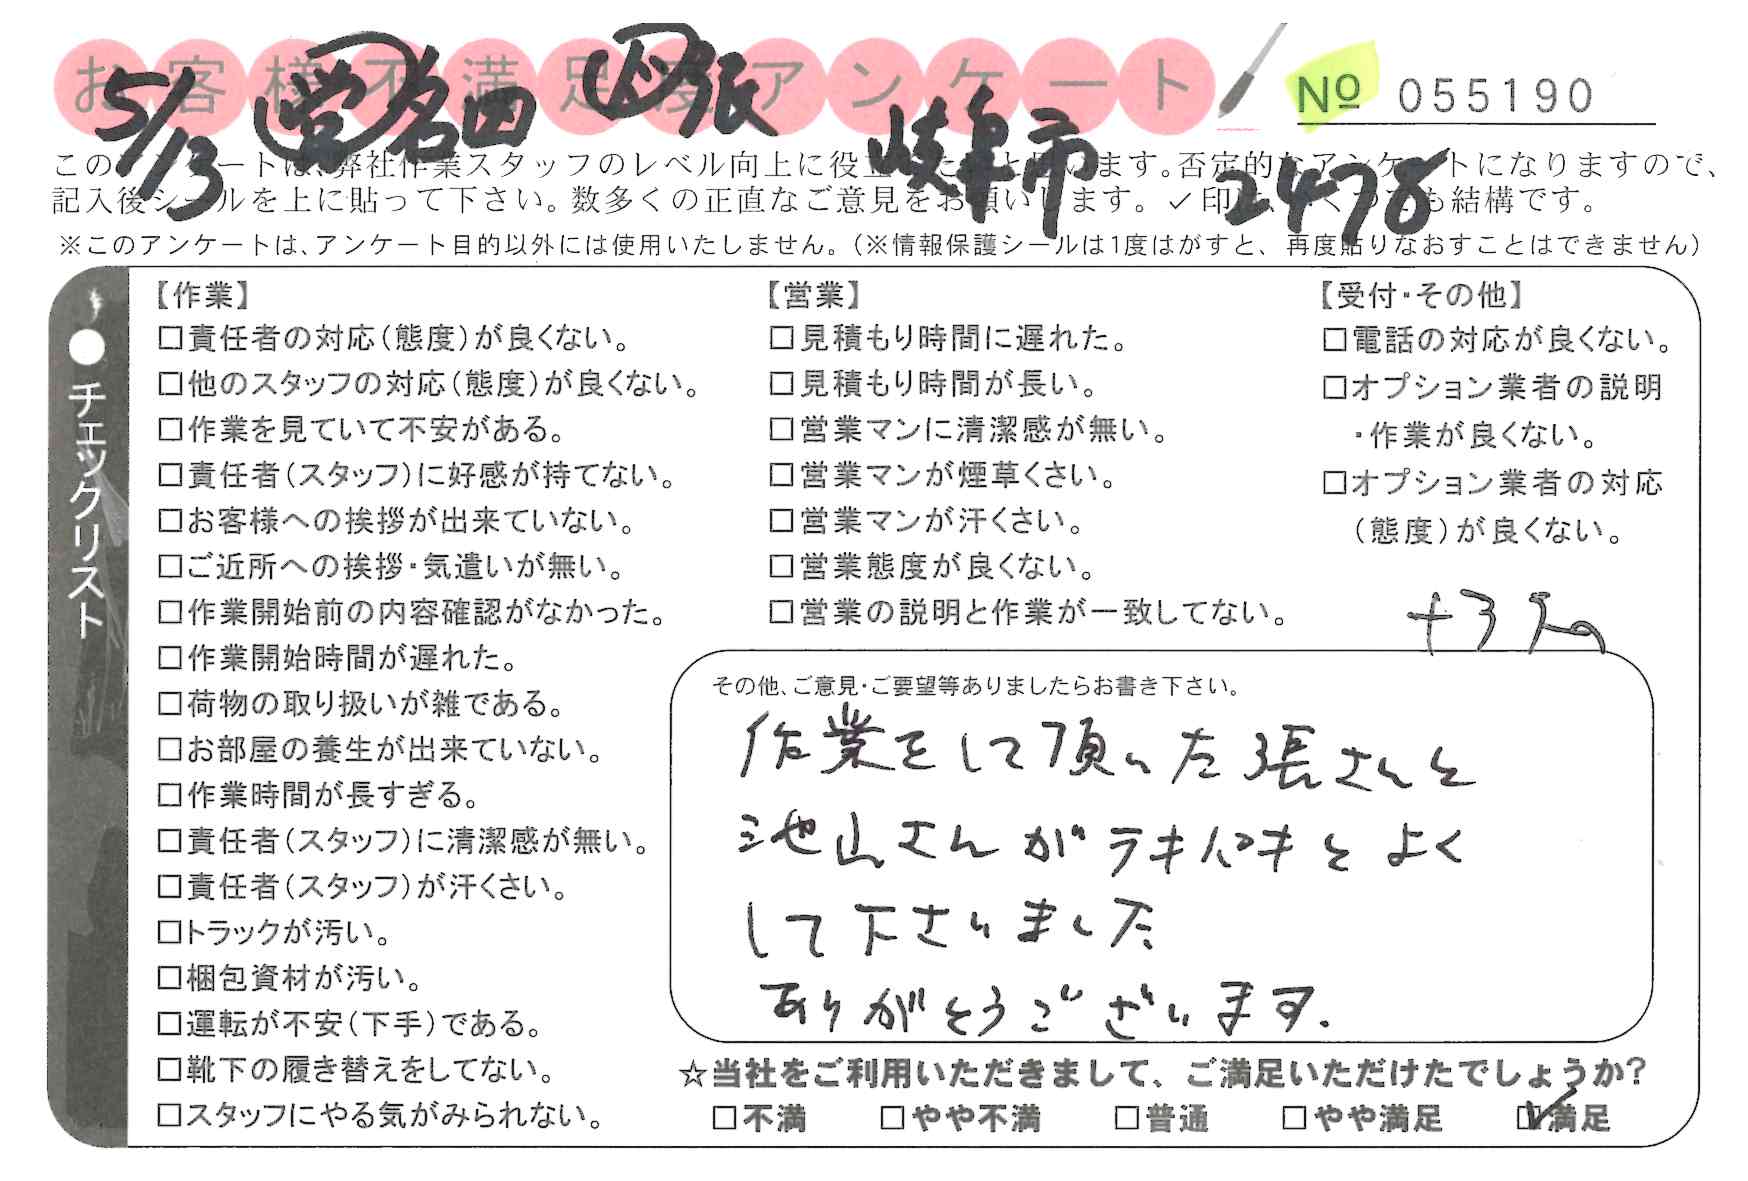 お客様不満足度アンケート
№ 055190
5/13 営 名四 作 張 岐阜市 2478
このアンケートは、弊社作業スタッフのレベル向上に役立てたいと思います。否定的なアンケートになりますので、
記入後シールを上に貼って下さい。数多くの正直なご意見をお願いします。✓印は、いくつでも結構です。
※このアンケートは、アンケート目的以外には使用いたしません。(※情報保護シールは1度はがすと、再度貼りなおすことはできません)
●チェックリスト
【作業】
□責任者の対応(態度)が良くない。
□他のスタッフの対応(態度)が良くない。
□作業を見ていて不安がある。
□責任者(スタッフ)に好感が持てない。
□お客様への挨拶が出来ていない。
□ご近所への挨拶・気遣いが無い。
□作業開始前の内容確認がなかった。
□作業開始時間が遅れた。
□荷物の取り扱いが雑である。
□お部屋の養生が出来ていない。
□作業時間が長すぎる。
□責任者(スタッフ)に清潔感が無い。
□責任者(スタッフ)が汗くさい。
□トラックが汚い。
□梱包資材が汚い。
□運転が不安(下手)である。
□靴下の履き替えをしてない。
□スタッフにやる気がみられない。
【営業】
□見積もり時間に遅れた。
□見積もり時間が長い。
□営業マンに清潔感が無い。
□営業マンが煙草くさい。
□営業マンが汗くさい。
□営業態度が良くない。
□営業の説明と作業が一致してない。
【受付・その他】
□電話の対応が良くない。
□オプション業者の説明
・作業が良くない。
□オプション業者の対応
(態度)が良くない。
その他、ご意見・ご要望等ありましたらお書き下さい。
作業をして頂いた張さんと
池山さんがテキパキとよく
して下さいました
ありがとうございます.
☆当社をご利用いただきまして、ご満足いただけたでしょうか?
□不満 □やや不満 □普通 □やや満足 ☑満足